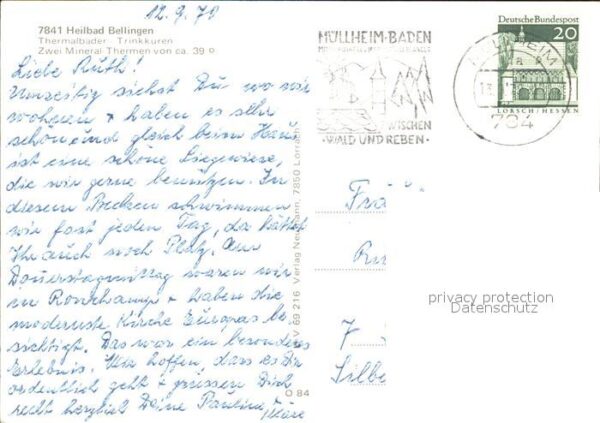 12.9.70
7841 Heilbad Bellingen
Thermalbäder Trinkkuren
Zwei Mineral Thermen von ca. 39°
Liebe Ruth!
Umseitig siehst Du wo wir
wohnen + haben es sehr
schön und gleich beim Haus
ist eine schöne Liegewiese,
die wir gerne benützen. In
diesem Becken schwimmen
wir fast jeden Tag, da hättet
Ihr auch noch Platz. Am
Donnerstagmittag waren wir
in Ronchamp + haben die
modernste Kirche Europas be-
sichtigt. Das war ein besonderes
Erlebnis. Wir hoffen, dass es Dir
ordentlich geht + grüssen Dich
recht herzlich Deine Pauline,
Verlag Neumann, 7850 Lörrach
V 69 216
O 84
MÜLLHEIM-BADEN
ZWISCHEN
·WALD UND REBEN·
Deutsche Bundespost
20
LORSCH/HESSEN
MÜLLHEIM
784
Frä
7
Silbe
privacy protection
Datenschutz